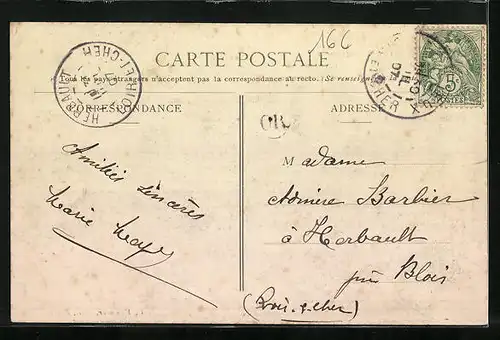 166
CARTE POSTALE
Tous les pays étrangers n'acceptent pas la correspondance au recto. (Se renseign
CORRESPONDANCE
ADRESSE
HERBAULT
LOIR-ET-CHER
OR
Amitiés sincères
Marie
Madame
Barbier
à Herbault
près Blois
(Loir-&-Cher)
5
POSTES